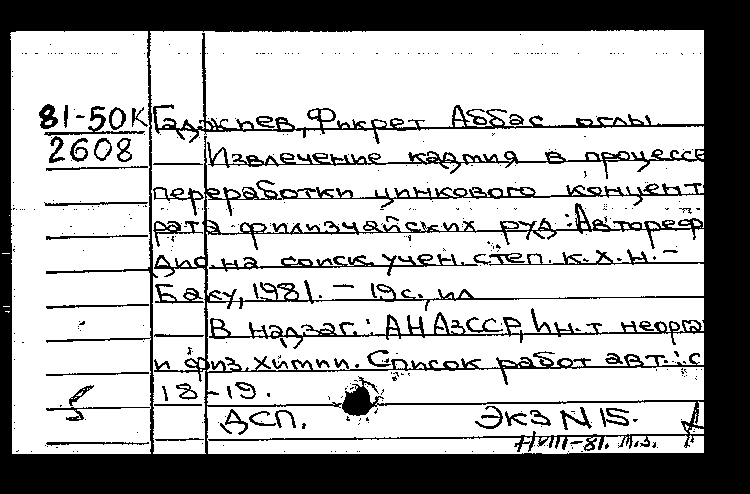 81-50К Гаджиев, Фикрет Аббас оглы
2608 Извлечение кадмия в процессе
переработки цинкового концент
рата филизчайских руд : Автореф
дис. на соиск. учен. степ. к.х.н. –
Баку, 1981. – 19 с., ил
В надзаг.: АН АзССР, Ин-т неорга
и физ. химии. Список работ авт.: с
18-19.
ДСП. ЭКЗ N 15.